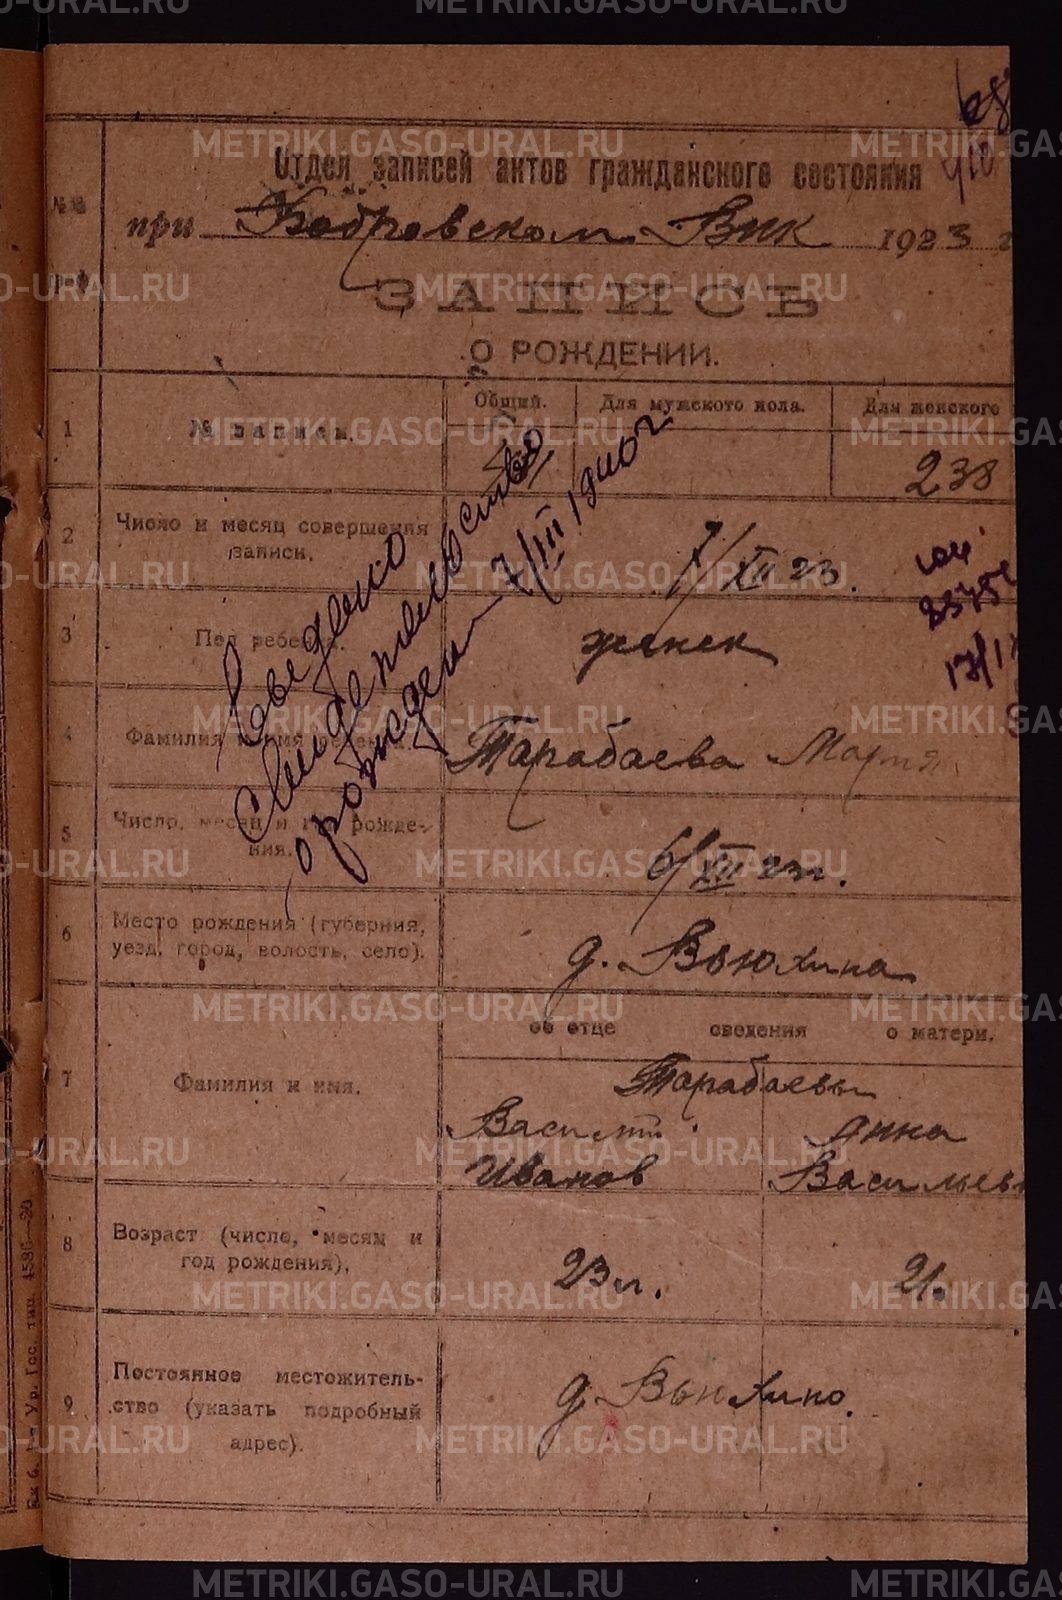 Отдел записей актов гражданского состояния
при Бобровском Вик 1923 г
ЗАПИСЬ
О РОЖДЕНИИ.
1 № записи. Общий. Для мужского пола. Для женского
238
2 Число и месяц совершения записи. 7/XII 23.
3 Пол ребенка. женск
4 Фамилия и имя ребенка. Тарабаева Мария
5 Число, месяц и год рождения. 6/XII 23 г.
6 Место рождения (губерния,
уезд, город, волость, село). д. Вьюхина
об отце сведения о матери.
7 Фамилия и имя. Тарабаевы
Василий Анна
Иванов Васильев
8 Возраст (число, месяц и
год рождения). 23 л. 21.
9 Постоянное местожитель-
ство (указать подробный
адрес). д. Вьюхино.
свидетельство
о рождении 7/III 1940 г.
17/I
METRIKI.GASO-URAL.RU